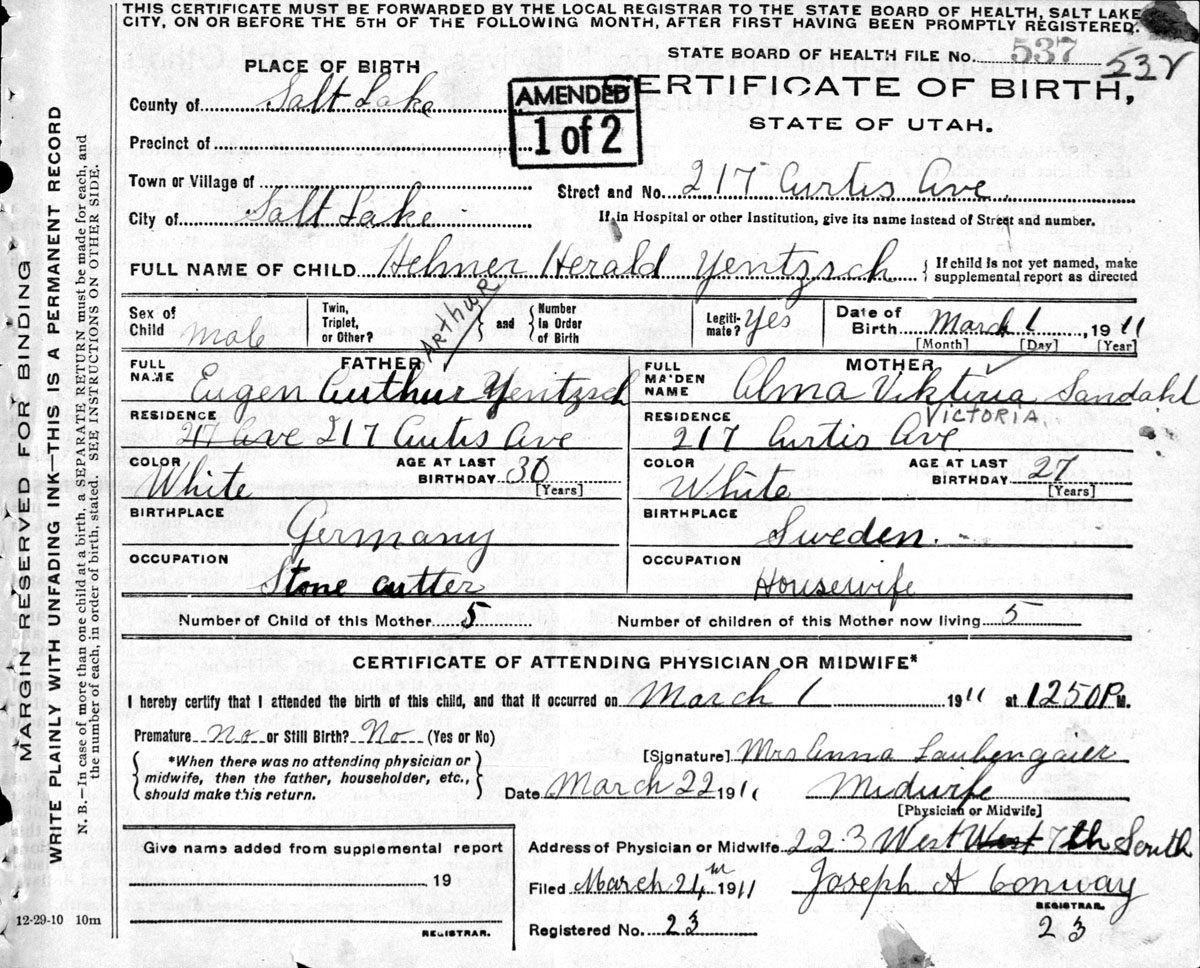 THIS CERTIFICATE MUST BE FORWARDED BY THE LOCAL REGISTRAR TO THE STATE BOARD OF HEALTH, SALT LAKE
CITY, ON OR BEFORE THE 5TH OF THE FOLLOWING MONTH, AFTER FIRST HAVING BEEN PROMPTLY REGISTERED.
STATE BOARD OF HEALTH FILE No. 537 532
PLACE OF BIRTH
AMENDED
1 of 2
CERTIFICATE OF BIRTH,
STATE OF UTAH.
County of Salt Lake
Precinct of
Town or Village of
Street and No. 217 Curtis Ave.
City of Salt Lake
If in Hospital or other Institution, give its name instead of Street and number.
FULL NAME OF CHILD Helmer Herald Yentzsch { If child is not yet named, make supplemental report as directed
Sex of Child Male
Twin, Triplet, or Other? } and { Number in Order of Birth
Legitimate? Yes
Date of Birth March 1, 1911
[Month] [Day] [Year]
FATHER
ARTHUR
FULL NAME Eugen Authur Yentzsch
MOTHER
FULL MAIDEN NAME Alma Viktiria Sandahl
VICTORIA
RESIDENCE 217 Ave 217 Curtis Ave
RESIDENCE 217 Curtis Ave
COLOR White
AGE AT LAST BIRTHDAY 30 [Years]
COLOR White
AGE AT LAST BIRTHDAY 27 [Years]
BIRTHPLACE Germany
BIRTHPLACE Sweden.
OCCUPATION Stone cutter
OCCUPATION Housewife
Number of Child of this Mother 5
Number of children of this Mother now living 5
CERTIFICATE OF ATTENDING PHYSICIAN OR MIDWIFE*
I hereby certify that I attended the birth of this child, and that it occurred on March 1 1911 at 1250 P.M.
Premature No or Still Birth? No (Yes or No)
{ *When there was no attending physician or
midwife, then the father, householder, etc.,
should make this return. }
[Signature] Mrs Anna Laubengaier
Date March 22 1911 Midwife
[Physician or Midwife]
Give name added from supplemental report
19
REGISTRAR.
Address of Physician or Midwife 223 West West 7th South
Filed March 24th 1911 Joseph A Conway
REGISTRAR.
Registered No. 23
23
12-29-10 10m
MARGIN RESERVED FOR BINDING
WRITE PLAINLY WITH UNFADING INK—THIS IS A PERMANENT RECORD
N. B.—In case of more than one child at a birth, a SEPARATE RETURN must be made for each, and
the number of each, in order of birth, stated. SEE INSTRUCTIONS ON OTHER SIDE.